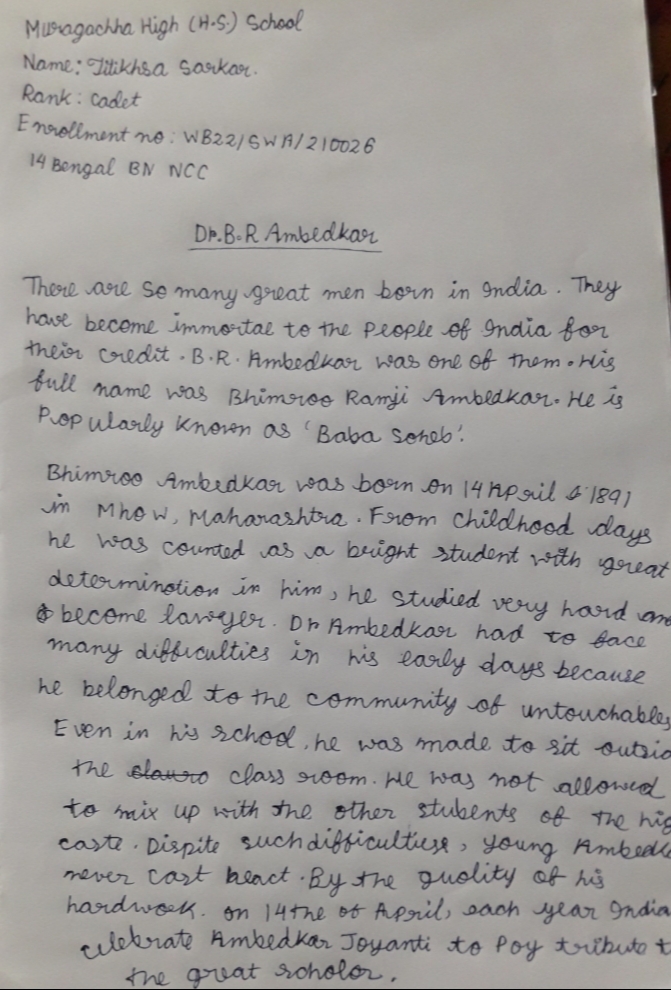 Muragachha High (H.S.) School
Name: Titikhsa Sarkar.
Rank: Cadet
Enrollment no: WB22/SWA/210026
14 Bengal BN NCC
Dr.B.R Ambedkar
There are so many great men born in India. They
have become immortae to the people of India for
their credit. B.R. Ambedkar was one of them. His
full name was Bhimroo Ramji Ambedkar. He is
Popularly Known as 'Baba Soheb'.
Bhimroo Ambedkar was born on 14 April 1891
in Mhow, Maharashtra. From childhood days
he was counted as a bright student with great
determinotion in him, he studied very hard an
become lawyer. Dr Ambedkar had to face
many difficulties in his early days because
he belonged to the community of untouchables
Even in his school, he was made to sit outsid
the class room. He was not allowed
to mix up with the other stubents of the hig
caste. Dispite such difficultiese, young Ambedk
never cast beact. By the quolity of his
hardwork. on 14the of April, each year India
celebrate Ambedkar Joyanti to Poy tribute t
the great scholor.